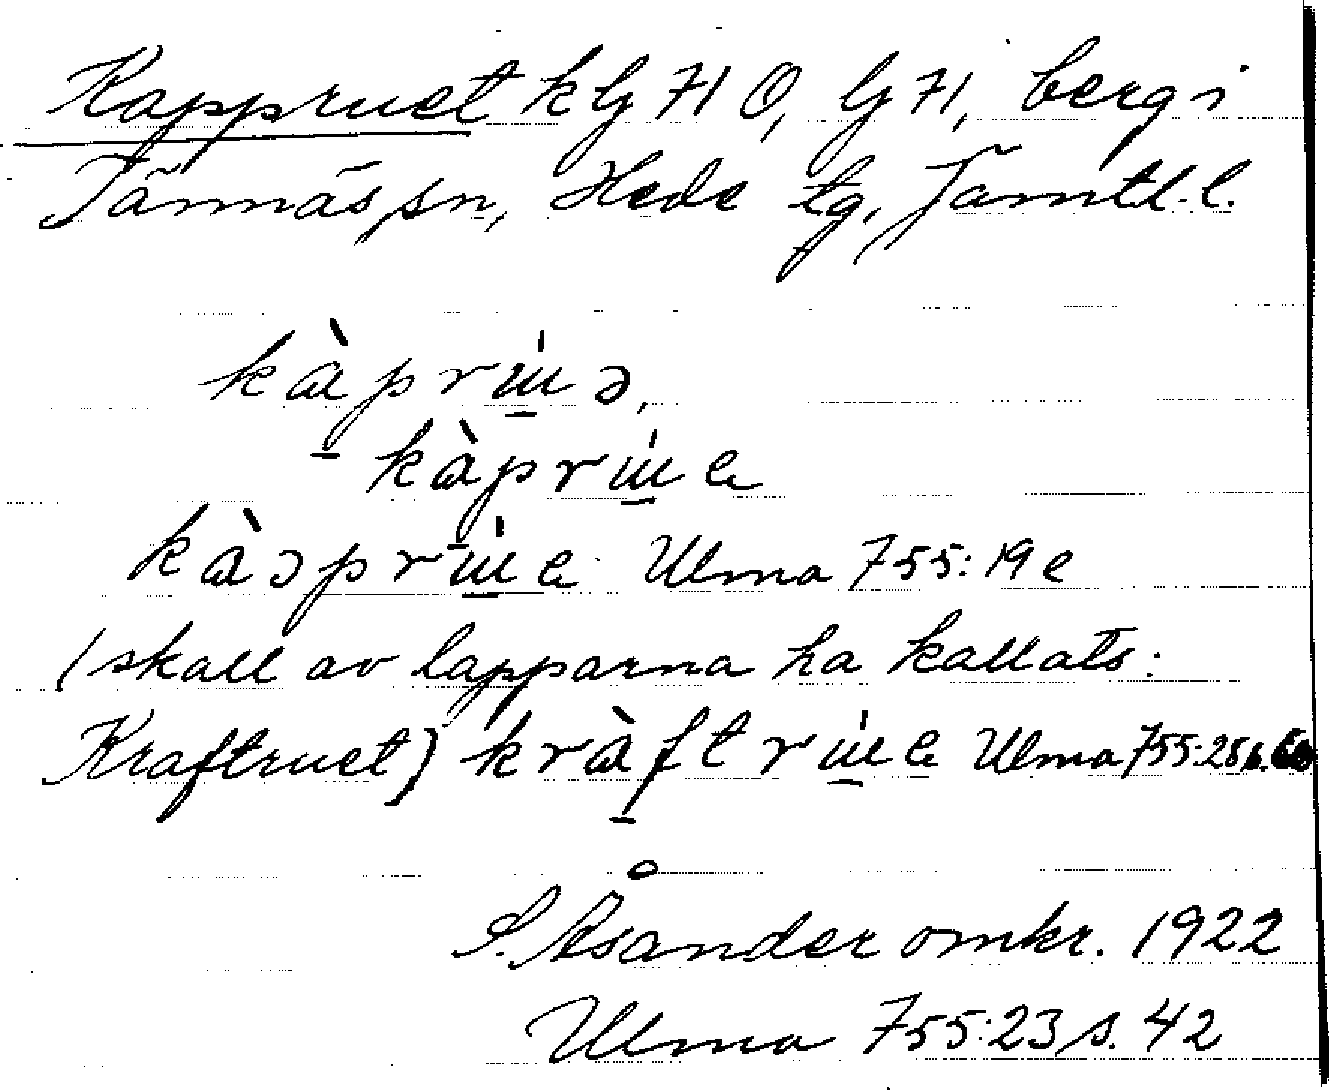 Kappruet kG71 Ö, G71, berg i
Tännäs sn, Hede tg, Jämtl. l.
kàprɯ́ ə,
kàprɯ́ e
kàəprɯ́ e Ulma 755:19 e
(skall av lapparna ha kallats:
Kraftruet) kràftrɯ́ e Ulma 755:25 s.
S. Åsander omkr. 1922
Ulma 755:23 s. 42